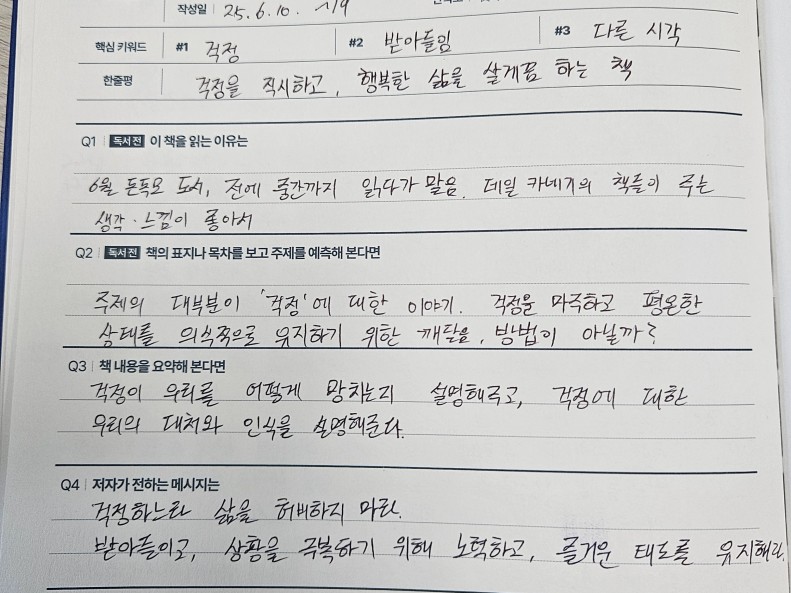 작성일 25.6.10. ~19
핵심 키워드 #1 걱정 #2 받아들임 #3 다른 시각
한줄평 걱정을 직시하고, 행복한 삶을 살게끔 하는 책
Q1 독서 전 이 책을 읽는 이유는
6월 돈독모 도서, 전에 중간까지 읽다가 말음. 데일 카네기의 책들이 주는
생각·느낌이 좋아서
Q2 독서 전 책의 표지나 목차를 보고 주제를 예측해 본다면
주제의 대부분이 '걱정'에 대한 이야기. 걱정을 마주하고 평온한
상태를 의식적으로 유지하기 위한 깨달음, 방법이 아닐까?
Q3 책 내용을 요약해 본다면
걱정이 우리를 어떻게 망치는지 설명해주고, 걱정에 대한
우리의 대처와 인식을 설명해준다.
Q4 저자가 전하는 메시지는
걱정하느라 삶을 허비하지 마라.
받아들이고, 상황을 극복하기 위해 노력하고, 즐거운 태도를 유지해라.